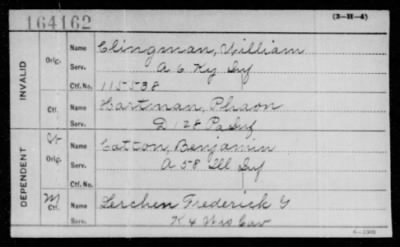 164162
(3-H-4)
INVALID
Orig.
Name Clingman, William
Serv. A 6 Ky Inf
Ctf. No. 115598
Ctf.
Name Hartman, Phaon
Serv. D 128 Pa Inf
DEPENDENT
Orig.
Name Cotton, Benjamin
Serv. A 58 Ill Inf
Ctf. No.
M
Ctf.
Name Lerchen Frederick G
Serv. K 4 Wis Cav